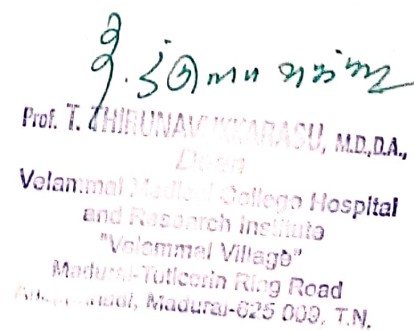 Prof. T. THIRUNAVUKKARASU, M.D.,D.A.,
Dean
Velammal Medical College Hospital
and Research Institute
"Velammal Village"
Madurai-Tuticorin Ring Road
Madurai-625 009, T.N.